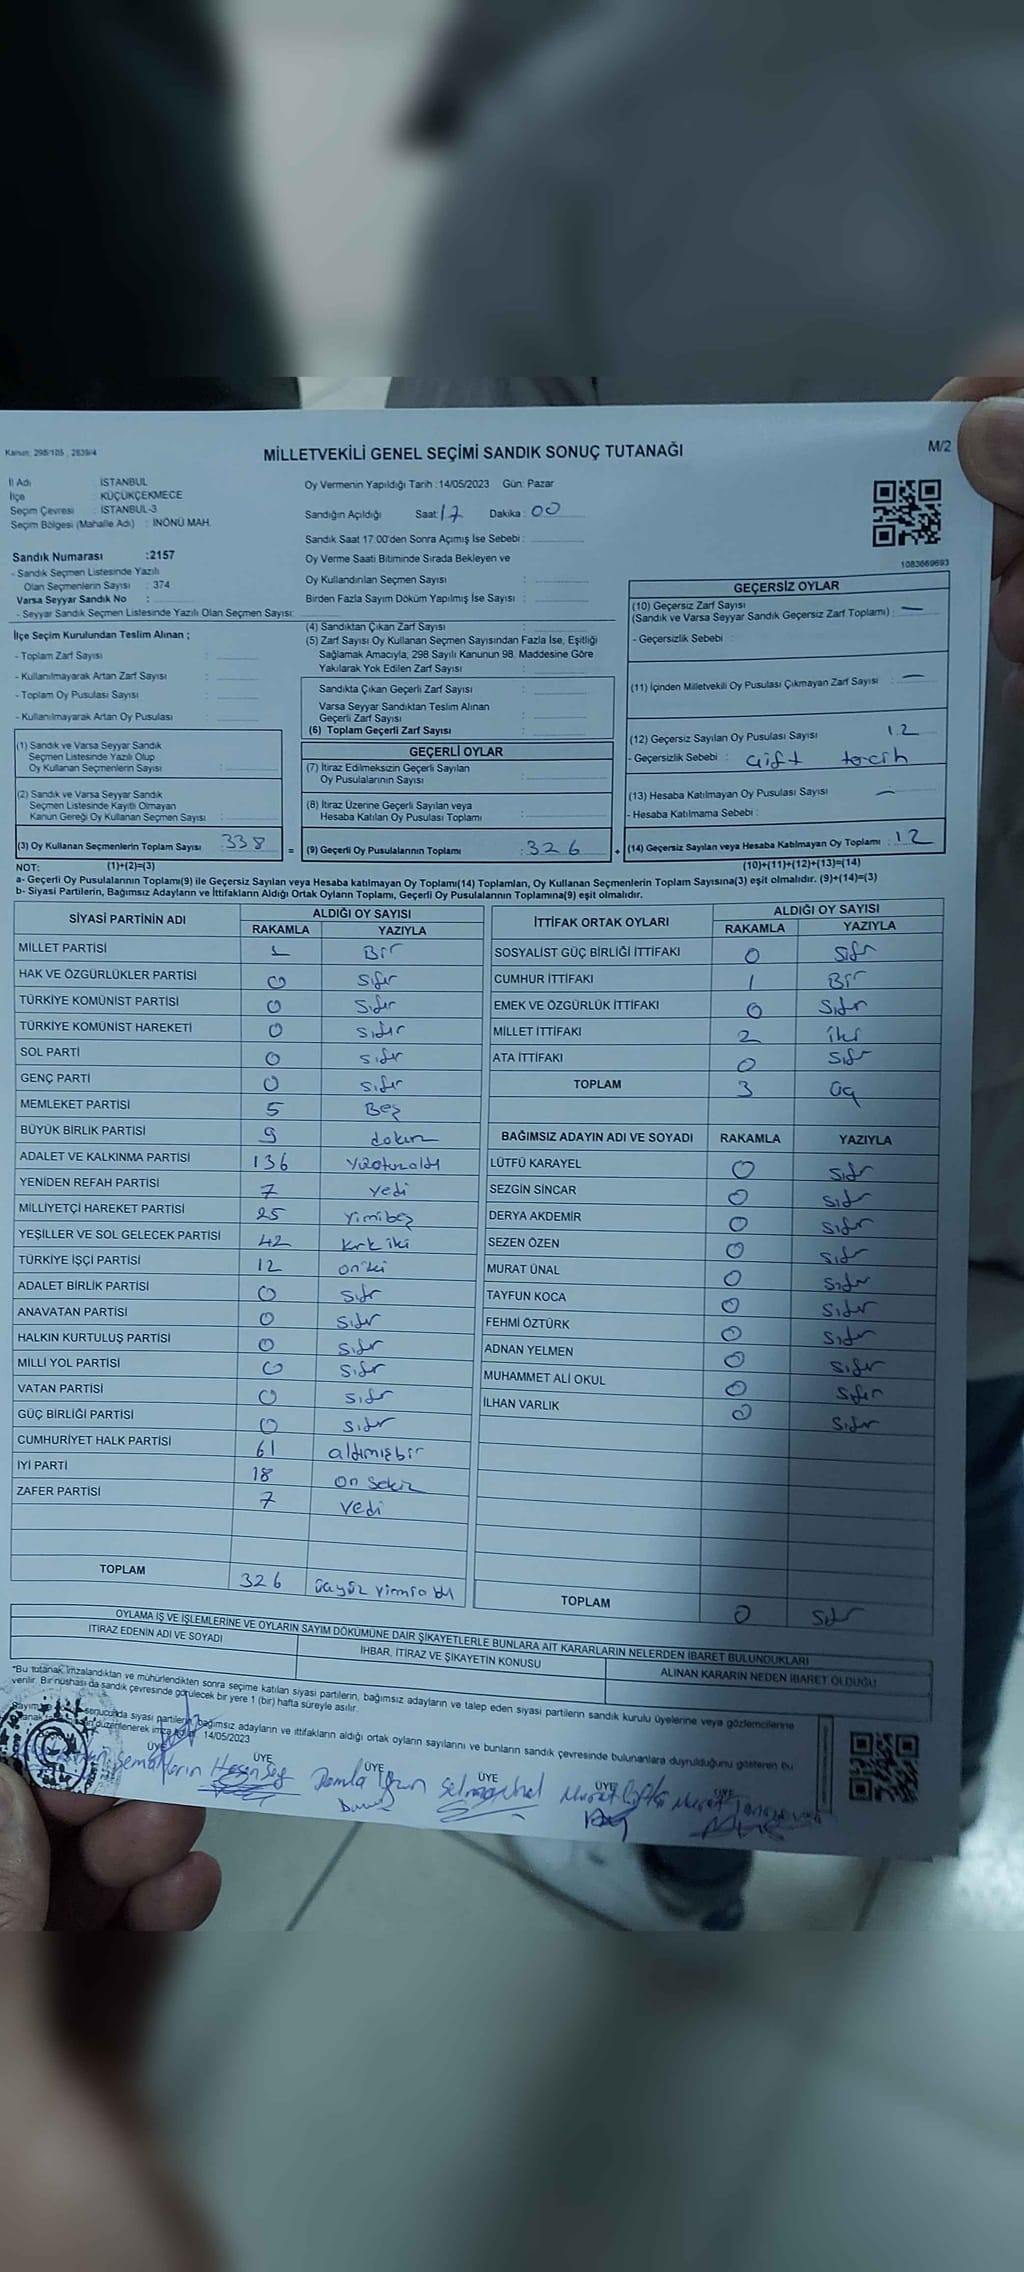 Kanun, 298/105 , 2839/4
MİLLETVEKİLİ GENEL SEÇİMİ SANDIK SONUÇ TUTANAĞI
M/2
İl Adı : İSTANBUL
İlçe : KÜÇÜKÇEKMECE
Seçim Çevresi : İSTANBUL-3
Seçim Bölgesi (Mahalle Adı) : İNÖNÜ MAH.
Sandık Numarası :2157
- Sandık Seçmen Listesinde Yazılı
Olan Seçmenlerin Sayısı : 374
Varsa Seyyar Sandık No :
- Seyyar Sandık Seçmen Listesinde Yazılı Olan Seçmen Sayısı:
Oy Vermenin Yapıldığı Tarih :14/05/2023 Gün: Pazar
Sandığın Açıldığı Saat: 17 Dakika : 00
Sandık Saat 17:00'den Sonra Açımış İse Sebebi :
Oy Verme Saati Bitiminde Sırada Bekleyen ve
Oy Kullandırılan Seçmen Sayısı :
Birden Fazla Sayım Döküm Yapılmış İse Sayısı :
1083669693
İlçe Seçim Kurulundan Teslim Alınan ;
- Toplam Zarf Sayısı :
- Kullanılmayarak Artan Zarf Sayısı :
- Toplam Oy Pusulası Sayısı :
- Kullanılmayarak Artan Oy Pusulası :
(1) Sandık ve Varsa Seyyar Sandık
Seçmen Listesinde Yazılı Olup
Oy Kullanan Seçmenlerin Sayısı :
(2) Sandık ve Varsa Seyyar Sandık
Seçmen Listesinde Kayıtlı Olmayan
Kanun Gereği Oy Kullanan Seçmen Sayısı :
(3) Oy Kullanan Seçmenlerin Toplam Sayısı :338
(4) Sandıktan Çıkan Zarf Sayısı :
(5) Zarf Sayısı Oy Kullanan Seçmen Sayısından Fazla İse, Eşitliği
Sağlamak Amacıyla, 298 Sayılı Kanunun 98. Maddesine Göre
Yakılarak Yok Edilen Zarf Sayısı :
Sandıkta Çıkan Geçerli Zarf Sayısı :
Varsa Seyyar Sandıktan Teslim Alınan
Geçerli Zarf Sayısı :
(6) Toplam Geçerli Zarf Sayısı :
GEÇERLİ OYLAR
(7) İtiraz Edilmeksizin Geçerli Sayılan
Oy Pusulalarının Sayısı :
(8) İtiraz Üzerine Geçerli Sayılan veya
Hesaba Katılan Oy Pusulası Toplamı :
= (9) Geçerli Oy Pusulalarının Toplamı :326 +
GEÇERSİZ OYLAR
(10) Geçersiz Zarf Sayısı
(Sandık ve Varsa Seyyar Sandık Geçersiz Zarf Toplamı) : —
- Geçersizlik Sebebi :
(11) İçinden Milletvekili Oy Pusulası Çıkmayan Zarf Sayısı : —
(12) Geçersiz Sayılan Oy Pusulası Sayısı : 12
- Geçersizlik Sebebi : Çift tercih
(13) Hesaba Katılmayan Oy Pusulası Sayısı : —
- Hesaba Katılmama Sebebi :
(14) Geçersiz Sayılan veya Hesaba Katılmayan Oy Toplamı : 12
NOT: (1)+(2)=(3) (10)+(11)+(12)+(13)=(14)
a- Geçerli Oy Pusulalarının Toplamı(9) ile Geçersiz Sayılan veya Hesaba katılmayan Oy Toplamı(14) Toplamları, Oy Kullanan Seçmenlerin Toplam Sayısına(3) eşit olmalıdır. (9)+(14)=(3)
b- Siyasi Partilerin, Bağımsız Adayların ve İttifakların Aldığı Ortak Oyların Toplamı, Geçerli Oy Pusulalarının Toplamına(9) eşit olmalıdır.
SİYASİ PARTİNİN ADI ALDIĞI OY SAYISI
RAKAMLA YAZIYLA
MİLLET PARTİSİ 1 Bir
HAK VE ÖZGÜRLÜKLER PARTİSİ 0 sıfır
TÜRKİYE KOMÜNİST PARTİSİ 0 sıfır
TÜRKİYE KOMÜNİST HAREKETİ 0 sıfır
SOL PARTİ 0 sıfır
GENÇ PARTİ 0 sıfır
MEMLEKET PARTİSİ 5 Beş
BÜYÜK BİRLİK PARTİSİ 9 dokuz
ADALET VE KALKINMA PARTİSİ 136 yüzotuzaltı
YENİDEN REFAH PARTİSİ 7 yedi
MİLLİYETÇİ HAREKET PARTİSİ 25 yimibeş
YEŞİLLER VE SOL GELECEK PARTİSİ 42 kırk iki
TÜRKİYE İŞÇİ PARTİSİ 12 oniki
ADALET BİRLİK PARTİSİ 0 sıfır
ANAVATAN PARTİSİ 0 sıfır
HALKIN KURTULUŞ PARTİSİ 0 sıfır
MİLLİ YOL PARTİSİ 0 sıfır
VATAN PARTİSİ 0 sıfır
GÜÇ BİRLİĞİ PARTİSİ 0 sıfır
CUMHURİYET HALK PARTİSİ 61 altmışbir
İYİ PARTİ 18 on sekiz
ZAFER PARTİSİ 7 yedi
TOPLAM 326 üçyüz
İTTİFAK ORTAK OYLARI ALDIĞI OY SAYISI
RAKAMLA YAZIYLA
SOSYALİST GÜÇ BİRLİĞİ İTTİFAKI 0 sıfır
CUMHUR İTTİFAKI 1 Bir
EMEK VE ÖZGÜRLÜK İTTİFAKI 0 sıfır
MİLLET İTTİFAKI 2 iki
ATA İTTİFAKI 0 sıfır
TOPLAM 3 üç
BAĞIMSIZ ADAYIN ADI VE SOYADI RAKAMLA YAZIYLA
LÜTFÜ KARAYEL 0 sıfır
SEZGİN SİNCAR 0 sıfır
DERYA AKDEMİR 0 sıfır
SEZEN ÖZEN 0 sıfır
MURAT ÜNAL 0 sıfır
TAYFUN KOCA 0 sıfır
FEHMİ ÖZTÜRK 0 sıfır
ADNAN YELMEN 0 sıfır
MUHAMMET ALİ OKUL 0 sıfır
İLHAN VARLIK 0 sıfır
TOPLAM 0 sıfır
OYLAMA İŞ VE İŞLEMLERİNE VE OYLARIN SAYIM DÖKÜMÜNE DAİR ŞİKAYETLERLE BUNLARA AİT KARARLARIN NELERDEN İBARET BULUNDUKLARI
İTİRAZ EDENİN ADI VE SOYADI İHBAR, İTİRAZ VE ŞİKAYETİN KONUSU ALINAN KARARIN NEDEN İBARET OLDUĞU
*Bu tutanak, imzalandıktan ve mühürlendikten sonra seçime katılan siyasi partilerin, bağımsız adayların ve talep eden siyasi partilerin sandık kurulu üyelerine veya gözlemcilerine
verilir. Bir nüshası da sandık çevresinde görülecek bir yere 1 (bir) hafta süreyle asılır.
Sayım sonucunda siyasi partilerin, bağımsız adayların ve ittifakların aldığı ortak oyların sayılarını ve bunların sandık çevresinde bulunanlara duyrulduğunu gösteren bu
düzenlenerek imza 14/05/2023
ÜYE ÜYE ÜYE ÜYE ÜYE ÜYE
Damla Murat